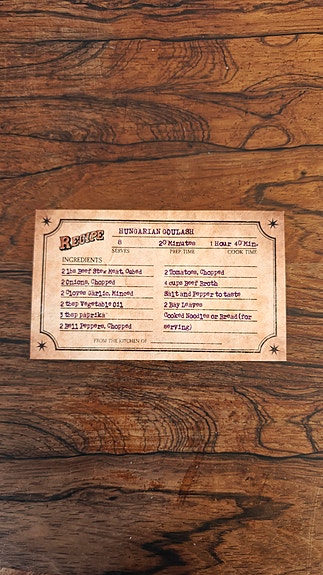 RECIPE
HUNGARIAN GOULASH
8 20 Minutes 1 Hour 40 Min.
SERVES PREP TIME COOK TIME
INGREDIENTS
2 lbs Beef Stew Meat, Cubed
2 Onions, Chopped
2 Cloves Garlic, Minced
2 tbsp Vegetable Oil
3 tbsp paprika
2 Bell Peppers, Chopped
2 Tomatoes, Chopped
4 cups Beef Broth
Salt and Pepper to taste
2 Bay Leaves
Cooked Noodles or Bread (for
serving)
FROM THE KITCHEN OF